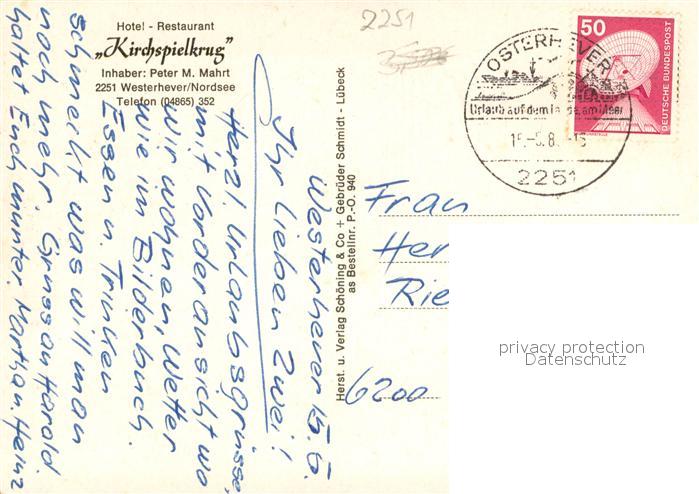 Hotel - Restaurant
„Kirchspielkrug"
Inhaber: Peter M. Mahrt
2251 Westerhever/Nordsee
Telefon (04865) 352
Westerhever 15. 5.
Ihr lieben Zwei!
Herzl. Urlaubsgrüsse
mit Vorderansicht wo
wir wohnen, Wetter
wie im Bilderbuch.
Essen u. Trinken
schmeckt was will man
noch mehr. Gruss an Harald.
haltet Euch munter. Martha u. Heinz
Herst. u. Verlag Schöning & Co + Gebrüder Schmidt - Lübeck
as Bestellnr. P.-O. 940
2251
OSTERHEVER
Urlaub auf dem Lande, am Meer
15.-5.8
2251
50
DEUTSCHE BUNDESPOST
Frau
Her
Rie
6200
privacy protection
Datenschutz